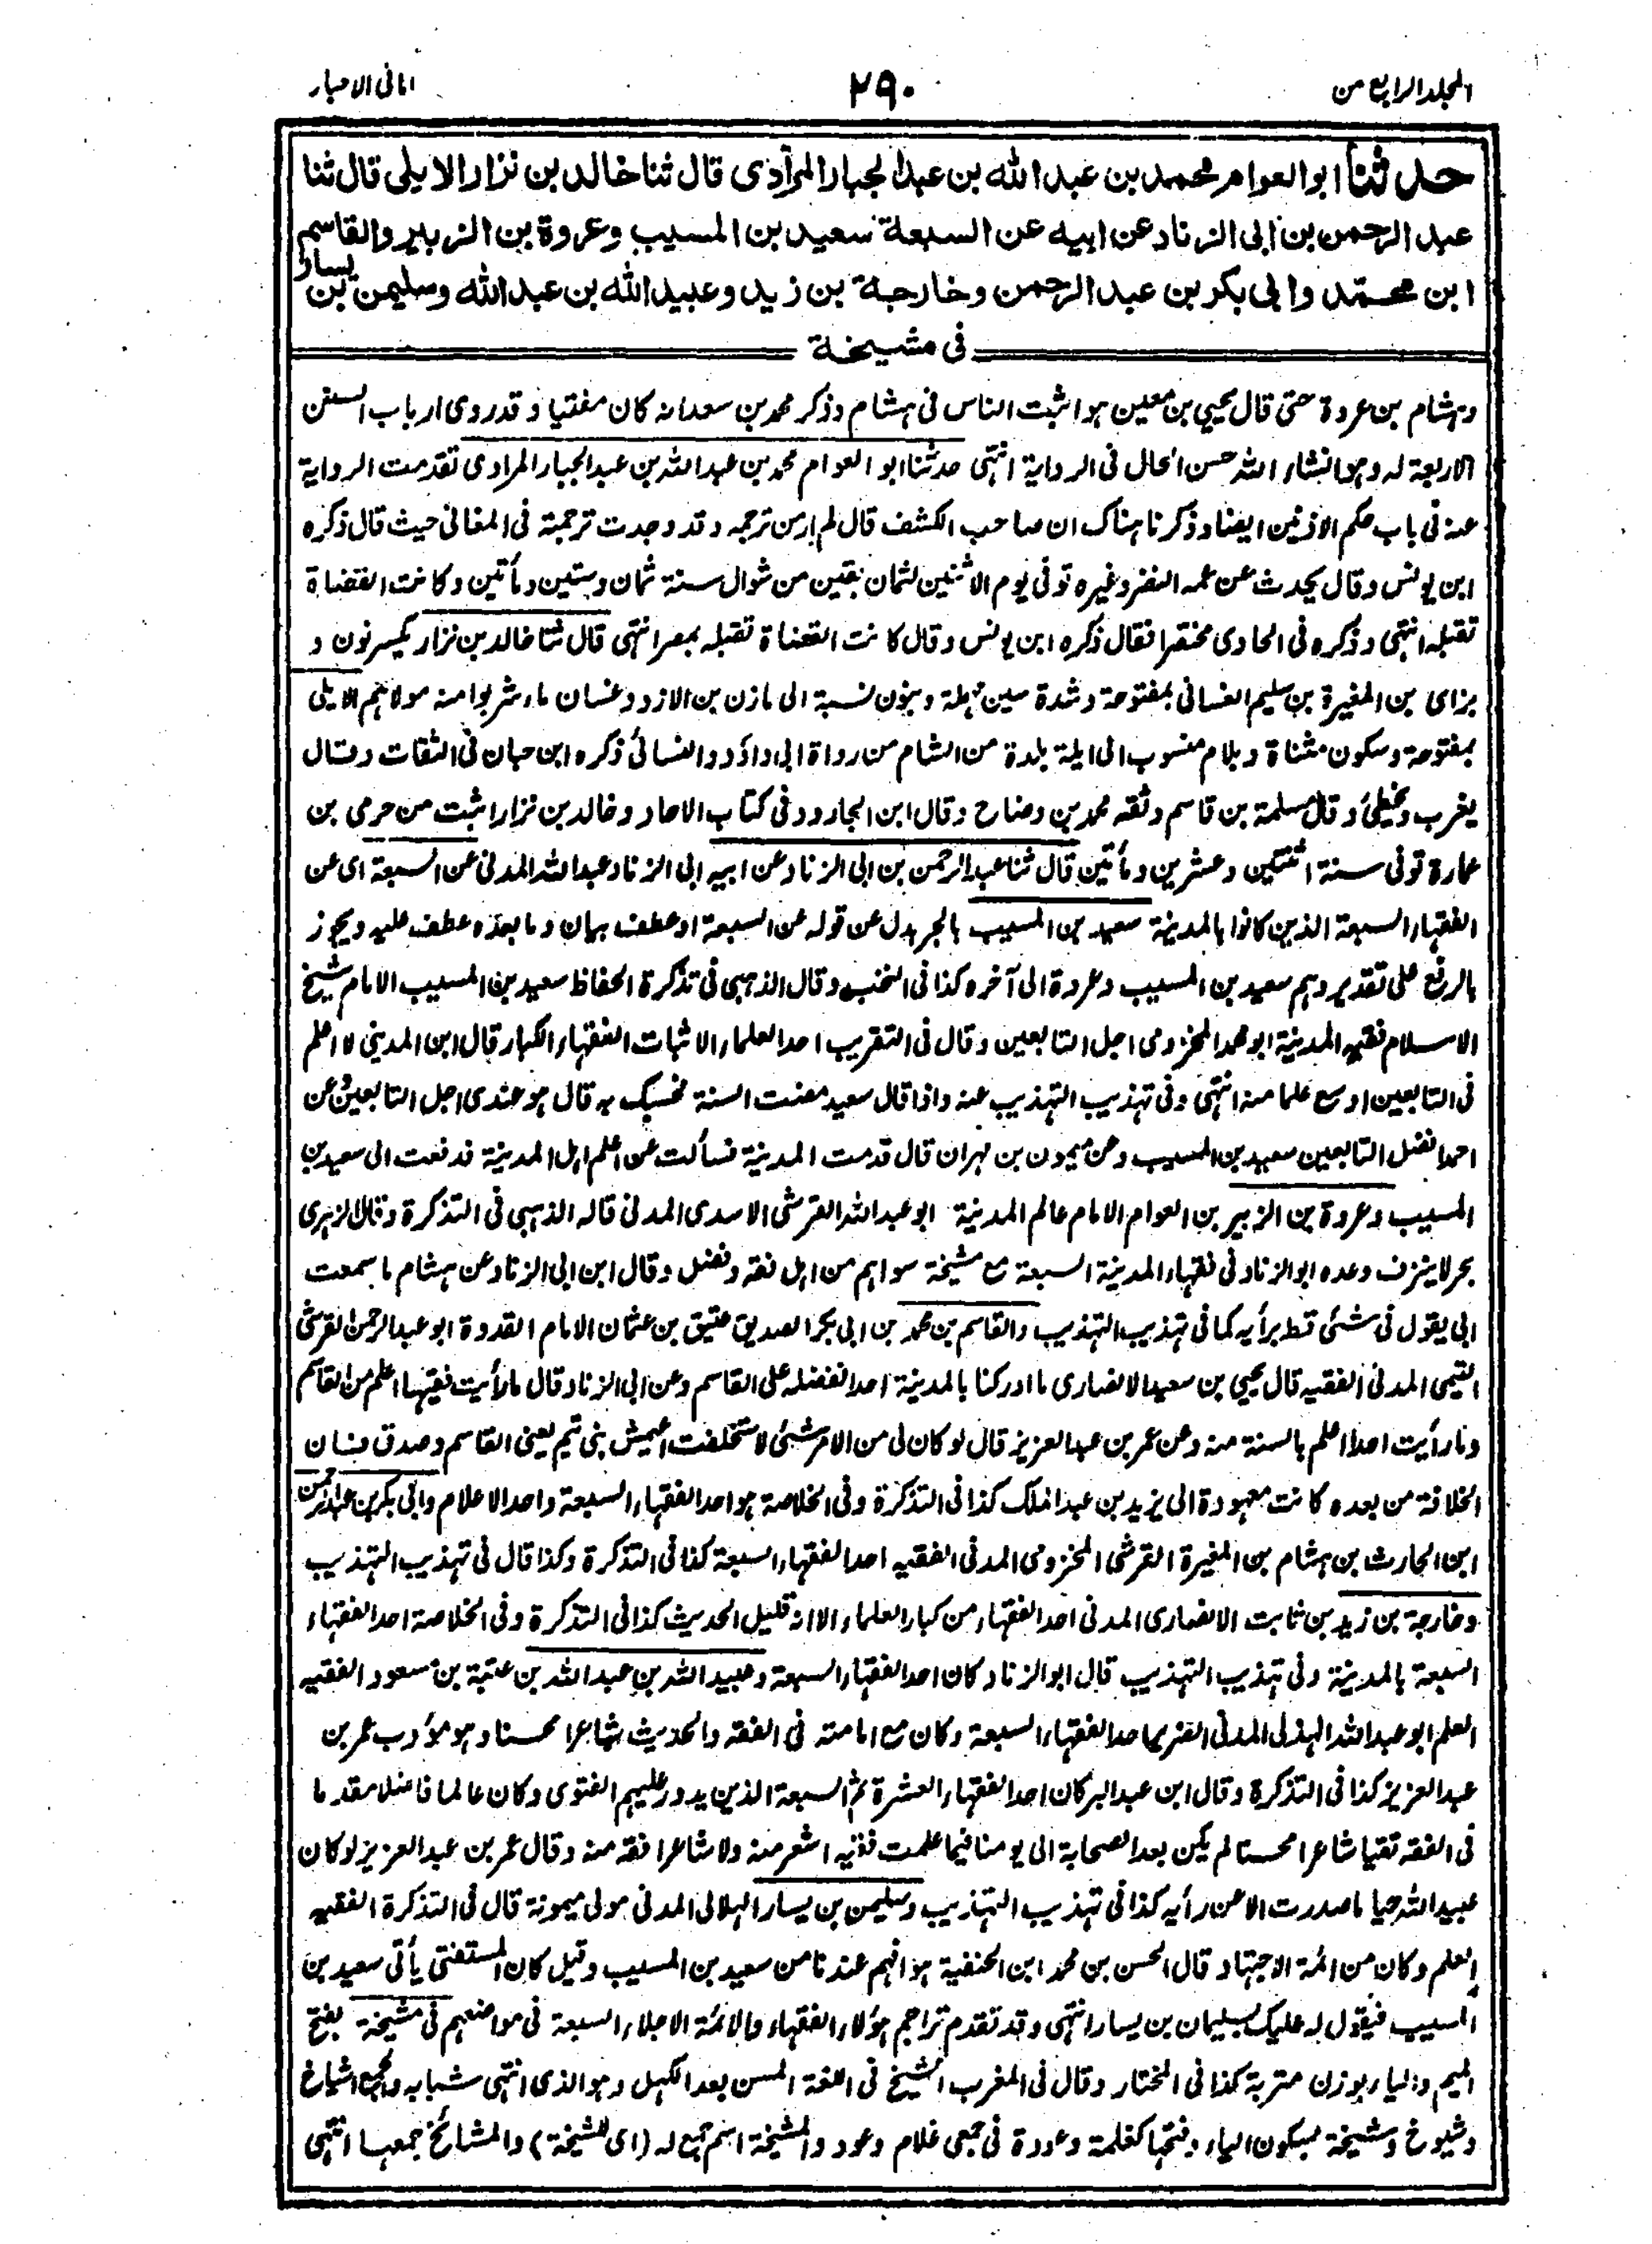 المجلد الرابع من
٢٩٠
امانى الاحبار
حدثنا ابوالعوام محمد بن عبد الله بن عبد الجبار المرادى قال ثنا خالد بن نزار الايلى قال ثنا
عبد الرحمن بن ابى الزناد عن ابيه عن السبعة سعيد بن المسيب وعروة بن الزبير والقاسم
ابن محمد وابى بكر بن عبد الرحمن وخارجة بن زيد وعبيد الله بن عبد الله وسليمن بن يسار
فى مشيخة
وہشام بن عروة حتى قال يحيى بن معين ہو اثبت الناس فى ہشام وذكر محمد بن سعد انه كان مفتيا وقد روى ارباب السنن
الاربعة له وہو انشاء الله حسن الحال فى الرواية انتہى حدثنا ابو العوام محمد بن عبد الله بن عبد الجبار المرادى تقدمت الرواية
عنه فى باب حكم الاذنين ايضا وذكرنا ہناك ان صاحب الكشف قال لم ار من ترجمه وقد وجدت ترجمته فى المغانى حيث قال ذكره
ابن يونس وقال يحدث عن عمه النضر وغيره توفى يوم الاثنين لثمان بقين من شوال سنة ثمان وستين ومأتين وكانت القضاة
تقبله انتہى وذكره فى الحاوى مختصرا فقال ذكره ابن يونس وقال كانت القضاة تقبله بمصر انتہى قال ثنا خالد بن نزار بكسر نون و
بزاى بن المغيرة بن سليم الغسانى بمفتوحة وشدة سين مہملة وبنون نسبة الى مازن بن الازد وغسان ماء شربوا منه مولاہم الايلى
بمفتوحة وسكون مثناة وبلام منسوب الى ايلة بلدة من الشام من رواة ابى داؤد والنسائى ذكره ابن حبان فى الثقات وقال
يغرب ويخطئ وقال مسلمة بن قاسم وثقه محمد بن وضاح وقال ابن الجارود فى كتاب الاحاد وخالد بن نزار اثبت من حرمى بن
عمارة توفى سنة اثنتين وعشرين ومأتين قال ثنا عبد الرحمن بن ابى الزناد عن ابيه ابى الزناد عبد الله المدنى عن السبعة اى عن
الفقہاء السبعة الذين كانوا بالمدينة سعيد بن المسيب بالجر بدل عن قوله عن السبعة او عطف بيان وما بعده عطف عليه ويجوز
بالرفع على تقدير وہم سعيد بن المسيب وعروة الى آخره كذا فى النخب وقال الذہبى فى تذكرة الحفاظ سعيد بن المسيب الامام شيخ
الاسلام فقيه المدينة ابو محمد المخزومى اجل التابعين وقال فى التقريب احد العلماء الاثبات الفقہاء الكبار قال ابن المدينى لا اعلم
فى التابعين اوسع علما منه انتہى وفى تہذيب التہذيب عنه واذا قال سعيد مضت السنة فحسبك به قال ہو عندى اجل التابعين وعن
احمد افضل التابعين سعيد بن المسيب وعن ميمون بن مہران قال قدمت المدينة فسألت عن اعلم اہل المدينة فدفعت الى سعيد بن
المسيب وعروة بن الزبير بن العوام الامام عالم المدينة ابو عبد الله القرشى الاسدى المدنى قاله الذہبى فى التذكرة وقال الزہرى
بحر لاينزف وعده ابو الزناد فى فقہاء المدينة السبعة مع مشيخة سواہم من اہل فقه وفضل وقال ابن ابى الزناد عن ہشام ما سمعت
ابى يقول فى شئى قط برأيه كما فى تہذيب التہذيب والقاسم بن محمد بن ابى بكر الصديق عتيق بن عثمان الامام القدوة ابو عبد الرحمن القرشى
التيمى المدنى الفقيه قال يحيى بن سعيد الانصارى ما ادركنا بالمدينة احدا نفضله على القاسم وعن ابى الزناد قال مارأيت فقيہا اعلم من القاسم
ومارأيت احدا اعلم بالسنة منه وعن عمر بن عبد العزيز قال لو كان لى من الامر شئى لاستخلفت اعيمش بنى تيم يعنى القاسم وصدق فان
الخلافة من بعده كانت معہودة الى يزيد بن عبد الملك كذا فى التذكرة وفى الخلاصة ہو احد الفقہاء السبعة واحد الاعلام وابى بكر بن عبد الرحمن
ابن الحارث بن ہشام بن المغيرة القرشى المخزومى المدنى الفقيه احد الفقہاء السبعة كذا فى التذكرة وكذا قال فى تہذيب التہذيب
وخارجة بن زيد بن ثابت الانصارى المدنى احد الفقہاء من كبار العلماء الا انه قليل الحديث كذا فى التذكرة وفى الخلاصة احد الفقہاء
السبعة بالمدينة وفى تہذيب التہذيب قال ابو الزناد كان احد الفقہاء السبعة وعبيد الله بن عبد الله بن عتبة بن مسعود الفقيه
العلم ابو عبد الله الہذلى المدنى الضرير احد الفقہاء السبعة وكان مع امامته فى الفقه والحديث شاعرا محسنا وہو مؤدب عمر بن
عبد العزيز كذا فى التذكرة وقال ابن عبد البر كان احد الفقہاء العشرة ثم السبعة الذين يدور عليہم الفتوى وكان عالما فاضلا مقدما
فى الفقه تقيا شاعرا محسنا لم يكن بعد الصحابة الى يومنا فيما علمت فقيه اشعر منه ولا شاعرا فقه منه وقال عمر بن عبد العزيز لو كان
عبيد الله حيا ماصدرت الا عن رأيه كذا فى تہذيب التہذيب وسليمن بن يسار الہلالى المدنى مولى ميمونة قال فى التذكرة الفقيه
العلم وكان من ائمة الاجتہاد قال الحسن بن محمد ابن الحنفية ہو افہم عندنا من سعيد بن المسيب وقيل كان المستفتى يأتى سعيد بن
المسيب فيقول له عليك بسليمان بن يسار انتہى وقد تقدم تراجم ہؤلاء الفقہاء والائمة الاجلاء السبعة فى مواضعہم فى مشيخة بفتح
الميم والياء بوزن متربة كذا فى المختار وقال فى المغرب الشيخ فى اللغة المسن بعد الكہل وہو الذى انتہى شبابه والجمع اشياخ
وشيوخ وشيخة بسكون الياء وفتحہا كغلمة وعودة فى جمعى غلام وعود والمشيخة اسم جمع له (اى للشيخة) والمشائخ جمعہا انتہى